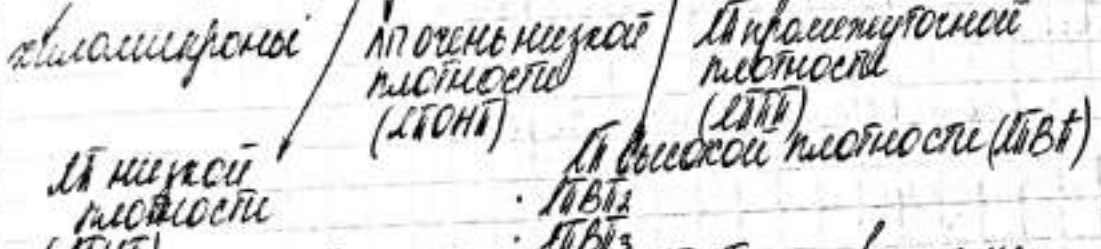 хиломикроны
ЛП очень низкой
плотности
(ЛПОНП)
ЛП промежуточной
плотности
(ЛППП)
ЛП низкой
плотности
(ЛПНП)
ЛП высокой плотности (ЛПВП)
· ЛПВП2
· ЛПВП3